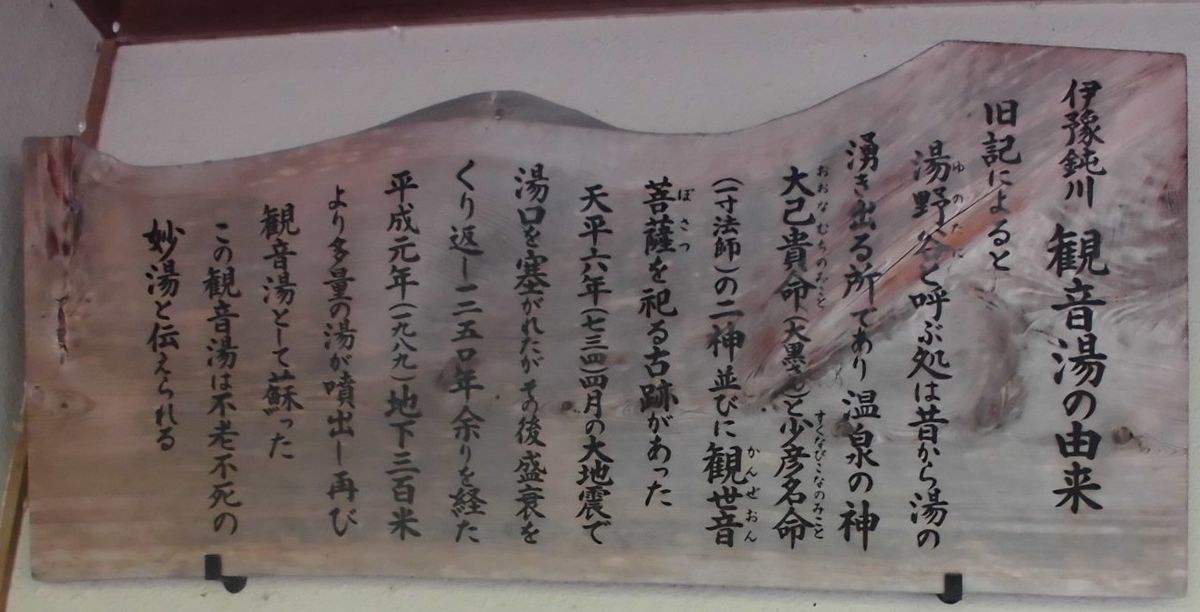 伊豫鈍川 観音湯の由来
旧記によると
湯野谷と呼ぶ処は昔から湯の
ゆのたに
湧き出る所であり温泉の神
大己貴命(大黒さん)と少彦名命
おおなむちのみこと すくなびこなのみこと
(一寸法師)の二神並びに観世音
かんぜおん
菩薩を祀る古跡があった
ぼさつ
天平六年(七三四)四月の大地震で
湯口を塞がれたがその後盛衰を
くり返し一二五〇年余りを経た
平成元年(一九八九)地下三百米
より多量の湯が噴出し再び
観音湯として蘇った
この観音湯は不老不死の
妙湯と伝えられる